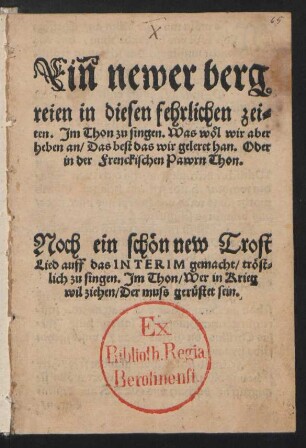 65
X
Ein newer berg
reien in diesen fehrlichen zei⸗
ten. Im Thon zu singen. Was wöl wir aber
heben an/ Das best das wir geleret han. Oder
in der Frenckischen Pawrn Thon.
Noch ein schön new Trost
Lied auff das INTERIM gemacht/ tröst⸗
lich zu singen. Im Thon/ Wer in Krieg
wil ziehen/ Der mus gerüstet sein.
Ex
Biblioth. Regia
Berolinensi.